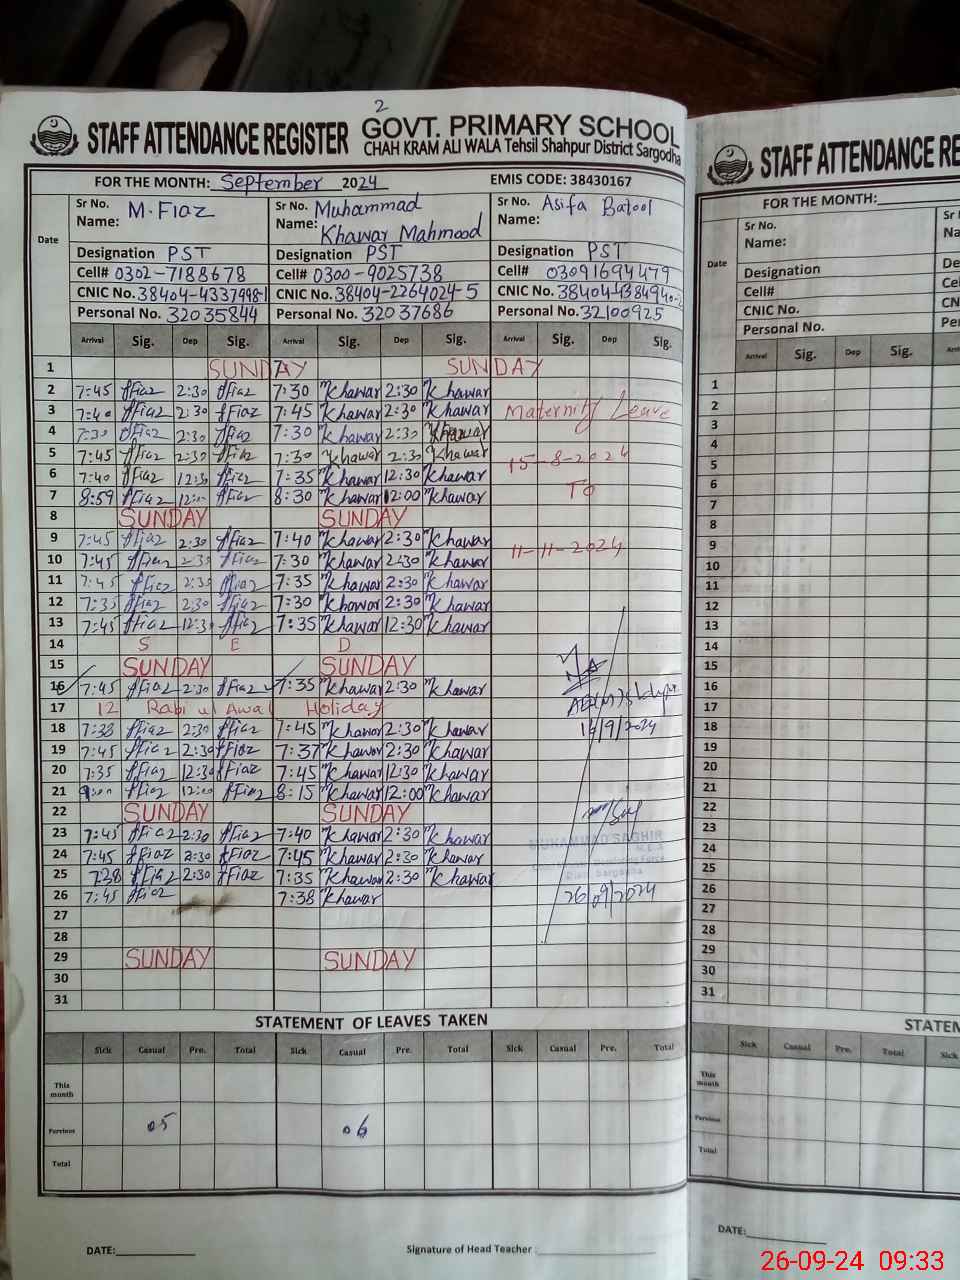 2
STAFF ATTENDANCE REGISTER GOVT. PRIMARY SCHOOL
CHAH KRAM ALI WALA Tehsil Shahpur District Sargodha
FOR THE MONTH: September 2024 EMIS CODE: 38430167
Date Sr No. Name: M. Fiaz Sr No. Name: Muhammad Khawar Mahmood Sr No. Name: Asifa Batool
Designation PST Designation PST Designation PST
Cell# 0302-7188678 Cell# 0300-9025738 Cell# 03091694479
CNIC No. 38404-4337998-1 CNIC No. 38404-2264024-5 CNIC No. 38404-4384940-2
Personal No. 32035844 Personal No. 32037686 Personal No. 32100925
Arrival Sig. Dep Sig. Arrival Sig. Dep Sig. Arrival Sig. Dep Sig.
1 SUNDAY SUNDAY
2 7:45 ffiaz 2:30 ffiaz 7:30 Khawar 2:30 Khawar
3 7:40 ffiaz 2:30 ffiaz 7:45 Khawar 2:30 Khawar Maternity Leave
4 7:30 ffiaz 2:30 ffiaz 7:30 Khawar 2:30 Khawar
5 7:45 ffiaz 2:30 ffiaz 7:30 Khawar 2:30 Khawar 15-8-2024
6 7:40 ffiaz 12:30 ffiaz 7:35 Khawar 12:30 Khawar
7 8:59 ffiaz 12:00 ffiaz 8:30 Khawar 12:00 Khawar To
8 SUNDAY SUNDAY
9 7:45 ffiaz 2:30 ffiaz 7:40 Khawar 2:30 Khawar 11-11-2024
10 7:45 ffiaz 2:30 ffiaz 7:30 Khawar 2:30 Khawar
11 7:45 ffiaz 2:30 ffiaz 7:35 Khawar 2:30 Khawar
12 7:35 ffiaz 2:30 ffiaz 7:30 Khawar 2:30 Khawar
13 7:45 ffiaz 12:30 ffiaz 7:35 Khawar 12:30 Khawar
14 S E D
15 SUNDAY SUNDAY
16 7:45 ffiaz 2:30 ffiaz 7:35 Khawar 2:30 Khawar
17 12 Rabi ul Awal Holiday
18 7:33 ffiaz 2:30 ffiaz 7:45 Khawar 2:30 Khawar
19 7:45 ffiaz 2:30 ffiaz 7:37 Khawar 2:30 Khawar
20 7:35 ffiaz 12:30 ffiaz 7:45 Khawar 12:30 Khawar
21 9:00 ffiaz 12:00 ffiaz 8:15 Khawar 12:00 Khawar
22 SUNDAY SUNDAY
23 7:45 ffiaz 2:30 ffiaz 7:40 Khawar 2:30 Khawar
24 7:45 ffiaz 2:30 ffiaz 7:45 Khawar 2:30 Khawar
25 7:38 ffiaz 2:30 ffiaz 7:35 Khawar 2:30 Khawar
26 7:45 ffiaz 7:38 Khawar 26/09/2024
27
28
29 SUNDAY SUNDAY
30
31
MUHAMMAD SAGHIR
M.E.A
STATEMENT OF LEAVES TAKEN
Sick Casual Pre. Total Sick Casual Pre. Total Sick Casual Pre. Total
This month
Pervious 05 06
Total
DATE: Signature of Head Teacher :
STAFF ATTENDANCE RE
FOR THE MONTH:
Date Sr No. Name: Sr Na
Designation De
Cell# Cel
CNIC No. CN
Personal No. Per
Arrival Sig. Dep Sig.
1
2
3
4
5
6
7
8
9
10
11
12
13
14
15
16
17
18
19
20
21
22
23
24
25
26
27
28
29
30
31
STATEM
Sick Casual Pre. Total Sick
This month
Pervious
Total
DATE:
26-09-24 09:33